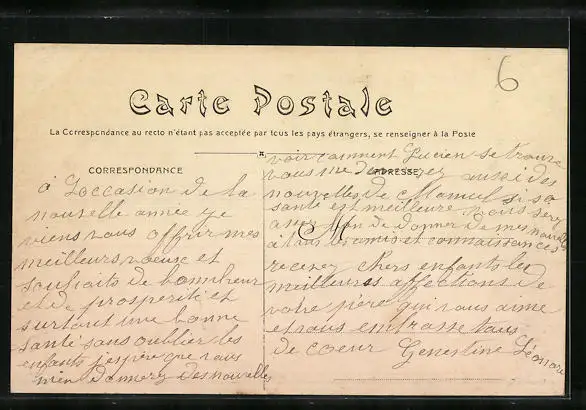 6
Carte Postale
La Correspondance au recto n'étant pas acceptée par tous les pays étrangers, se renseigner à la Poste
CORRESPONDANCE
à L'occasion de la
nouvelle année je
viens vous offrir mes
meilleurs voeuse et
souhaits de bonnheur
et de prosperité et
surtout une bonne
santé sans oublier les
enfants j'espère que vous
mien donnerz des nouvelles
ADRESSE
voir comment Lucien se trouve
vous me donnerez aussi des
nouvelles de Mamul si sa
santé est meilleure vous serz
assez bon de donner de mes nouvelles
à tous les amis et connaissances
recevez chers enfants les
meilleures affections de
votre père qui vous aime
et vous embrasse tous
de coeur Genestine Léonore